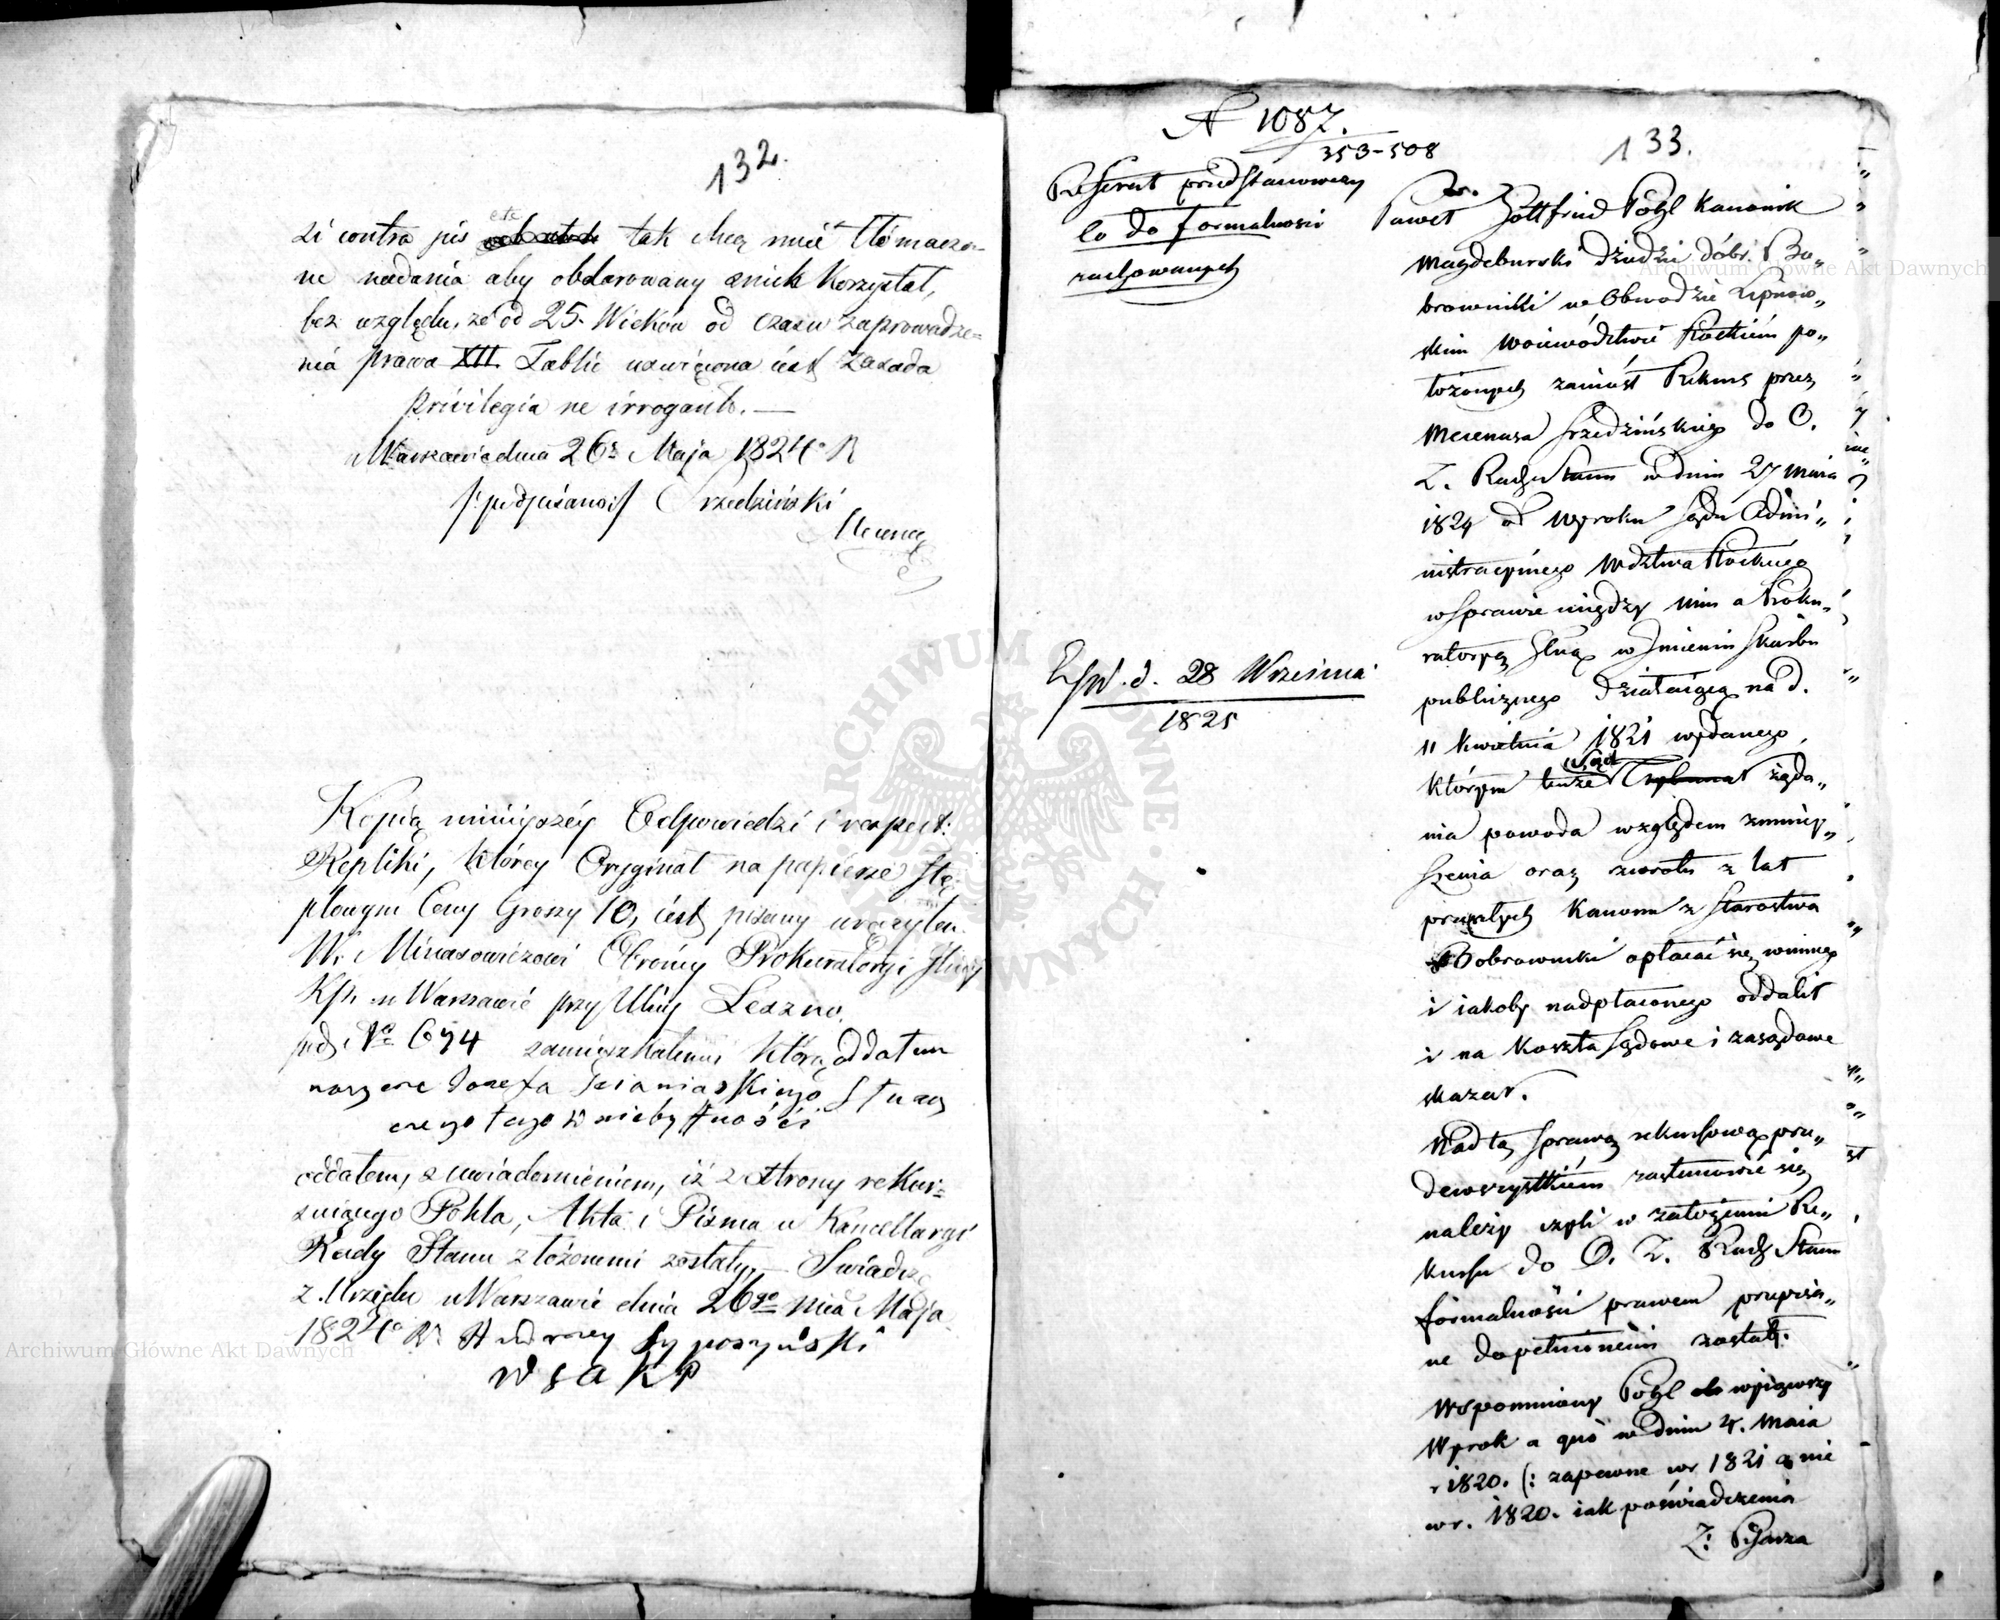 132.
zi contra jus etc tak chcą mieć tłómaczo-
ne nadania aby obdarowany z nich korzystał,
bez względu, że od 25. Wieków od czasu zaprowadze-
nia prawa XII Tablic uświęcona iest zasada
privilegia ne irroganto. —
w Warszawie dnia 26º Maja 1824º R
/: podpisano :/ Srzedziński
Mecenas
Kopią ninieyszéy Odpowiedzi i respect:
Repliki, któréy Oryginał na papierze stę-
plowym Ceny Groszy 10, iest pisany wręczyłem
W. Minasowiczowi Obrońcy Prokuratoryi
w Warszawie przy Ulicy Leszno
pod Nº 694 zamieszkałemu którą oddałem
na ręce Jozefa
tego w niebytności
oddałem, z uwiadomieniem, iż z strony rekur-
suiącego Pohla, Akta i Pisma w Kancellaryi
Rady Stanu złożonemi zostały. — Świadczę
z Urzędu w Warszawie dnia 26go mca Maja
1824º R. Andrzey Syposzyński
W S A K P
№ 1087.
353-508
133.
Referat przedstanowczy
co do formalności
zachowanych
Exp. d. 28 Września
1825
Paweł Gottfried Pohl Kanonik
Magdeburski dziedzic dóbr Bo„
browniki w Obwodzie Lipnow„
skim Woiewództwie Płockiém po„
łożonych zaniósł Rekurs przez
Mecenasa Srzedzińskiego do O.
Z. Rady Stanu w dniu 27 maia
1824 od Wyroku Sądu Admi„
nistracyinego Wdztwa Płockiego
w sprawie między nim a Proku„
ratoryą Glną w Imieniu Skarbu
publicznego działaiącą na d.
11 kwietnia 1821 wydanego,
którym tenże Sąd Trybunał żąda„
nia powoda względem zmniey„
szenia oraz zwrotu z lat
przeszłych Kanonu z Starostwa
Bobrowniki opłacać się winnego
i iakoby nadpłaconego oddalił
i na koszta sądowe i zasądowe
skazał.
Nad tą sprawą rekursową prze„
dewszystkiém zastanowić się
należy czyli w założeniu Re„
kursu do O. Z. Rady Stanu
formalności prawem przepisa„
ne dopełnionemi zostały.
Wspomniony Pohl wyiąwszy
Wyrok a quo w dniu 4. Maia
r 1820. (: zapewne w r 1821 a nie
w r. 1820. iak poświadczenia
Z: Pisarza
Archiwum Główne Akt Dawnych
Archiwum Główne Akt Dawnych
ARCHIWUM GŁÓWNE AKT DAWNYCH